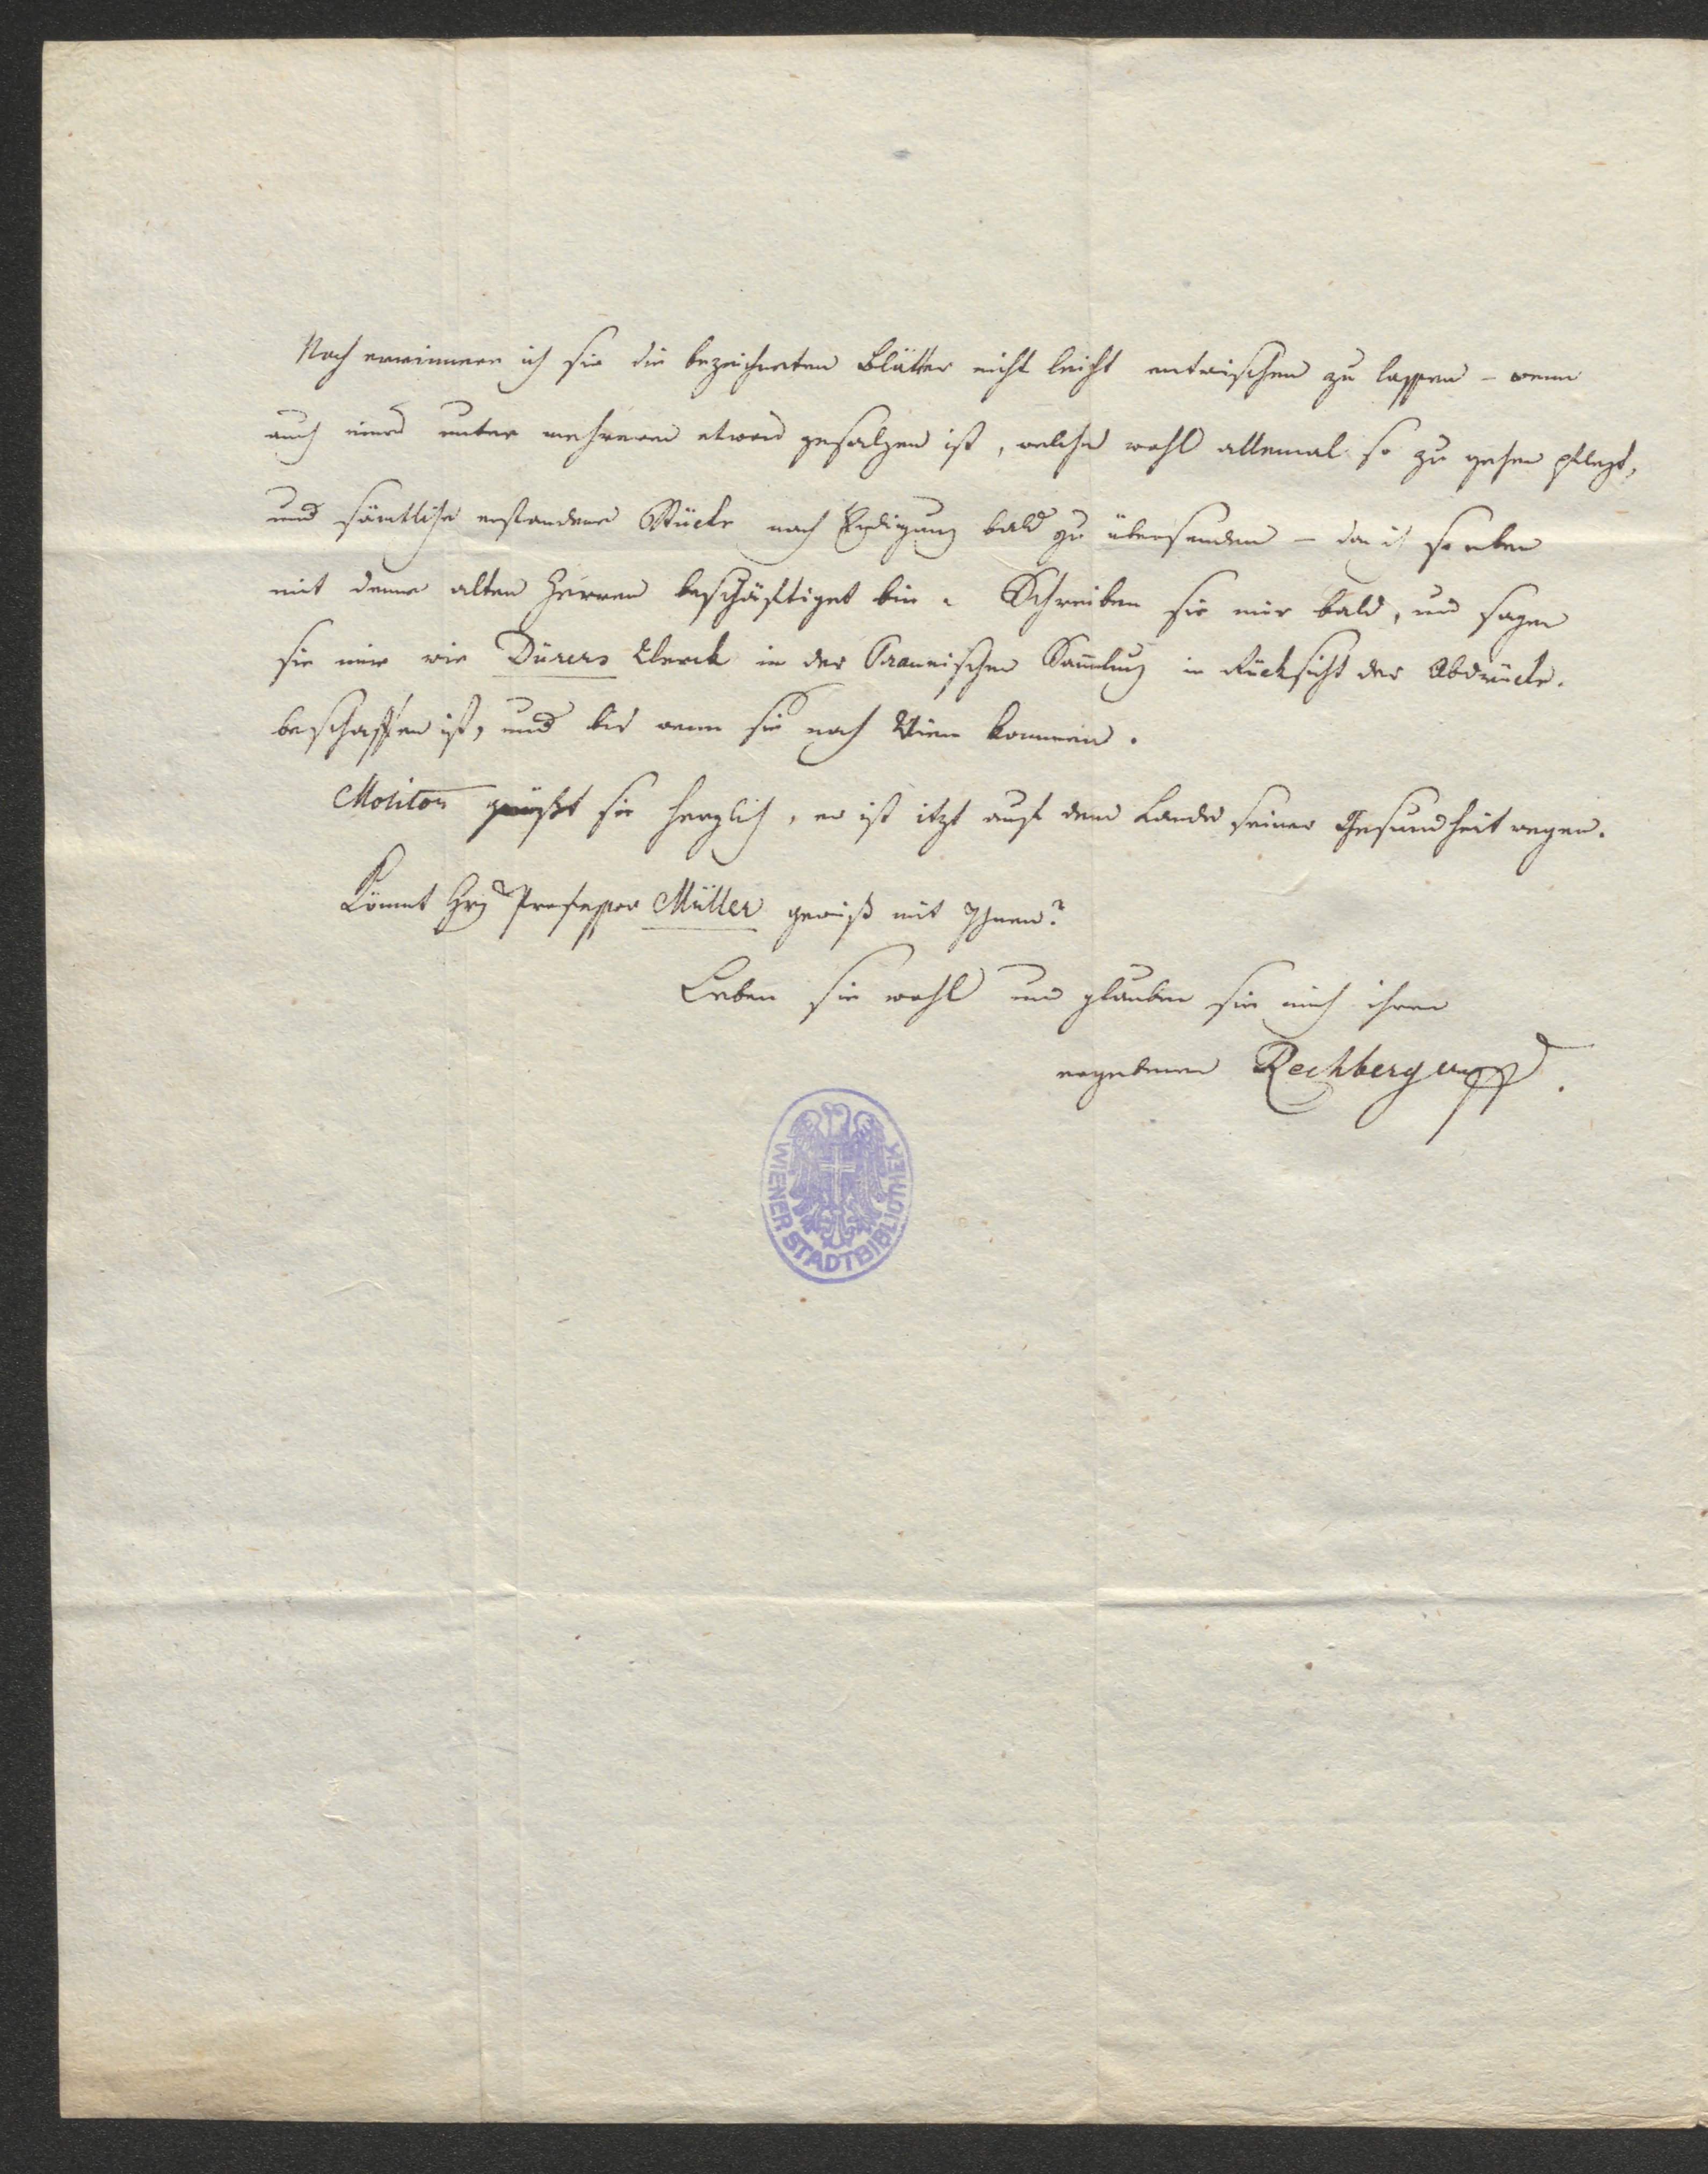 Noch erinnere ich sie die bezeichneten Blätter nicht leicht entwischen zu lassen – wenn
auch eines unter mehreren etwas gesalzen ist, welches wohl allemal so zu gehen pflegt,
und sämtliche erstandene Stücke nach Endigung bald zu übersenden – da ich so eben
mit denen alten Herren beschäftiget bin. Schreiben sie mir bald, und sagen
sie mir wie Dürers Werck in der Praunischen Sam̅lung in Rücksicht der Abdrücke.
beschaffen ist, und bis wenn sie nach Wien kommen.
Molitor grüßt sie herzlich, er ist itzt auf dem Lande seiner Gesundheit wegen.
Kömmt Professor Müller gewiß mit Ihnen?
Leben sie wohl und glauben sie mich ihren
ergebenen Rechberger
WIENER STADTBIBLIOTHEK